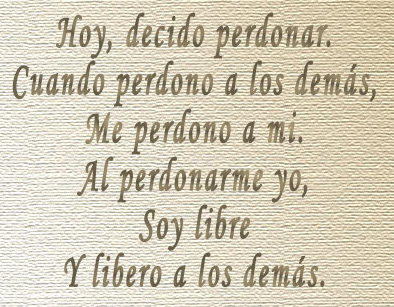 Hoy, decido perdonar.
Cuando perdono a los demás,
Me perdono a mi.
Al perdonarme yo,
Soy libre
Y libero a los demás.